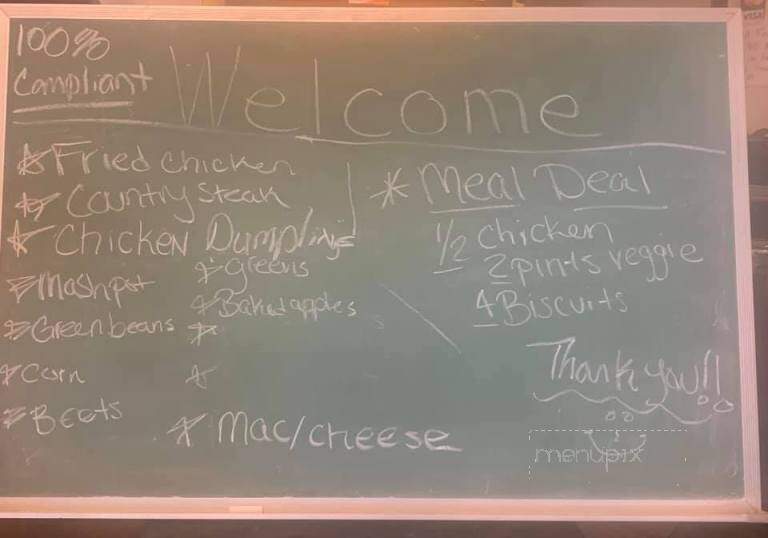 100%
Compliant
Welcome
Fried chicken
Country Steak
Chicken Dumplings
Mashpot
Greenbeans
Corn
Beets
Greens
Baked apples
Mac/cheese
* Meal Deal
1/2 chicken
2 pints veggie
4 Biscuits
Thank you!!
menupix
VISA